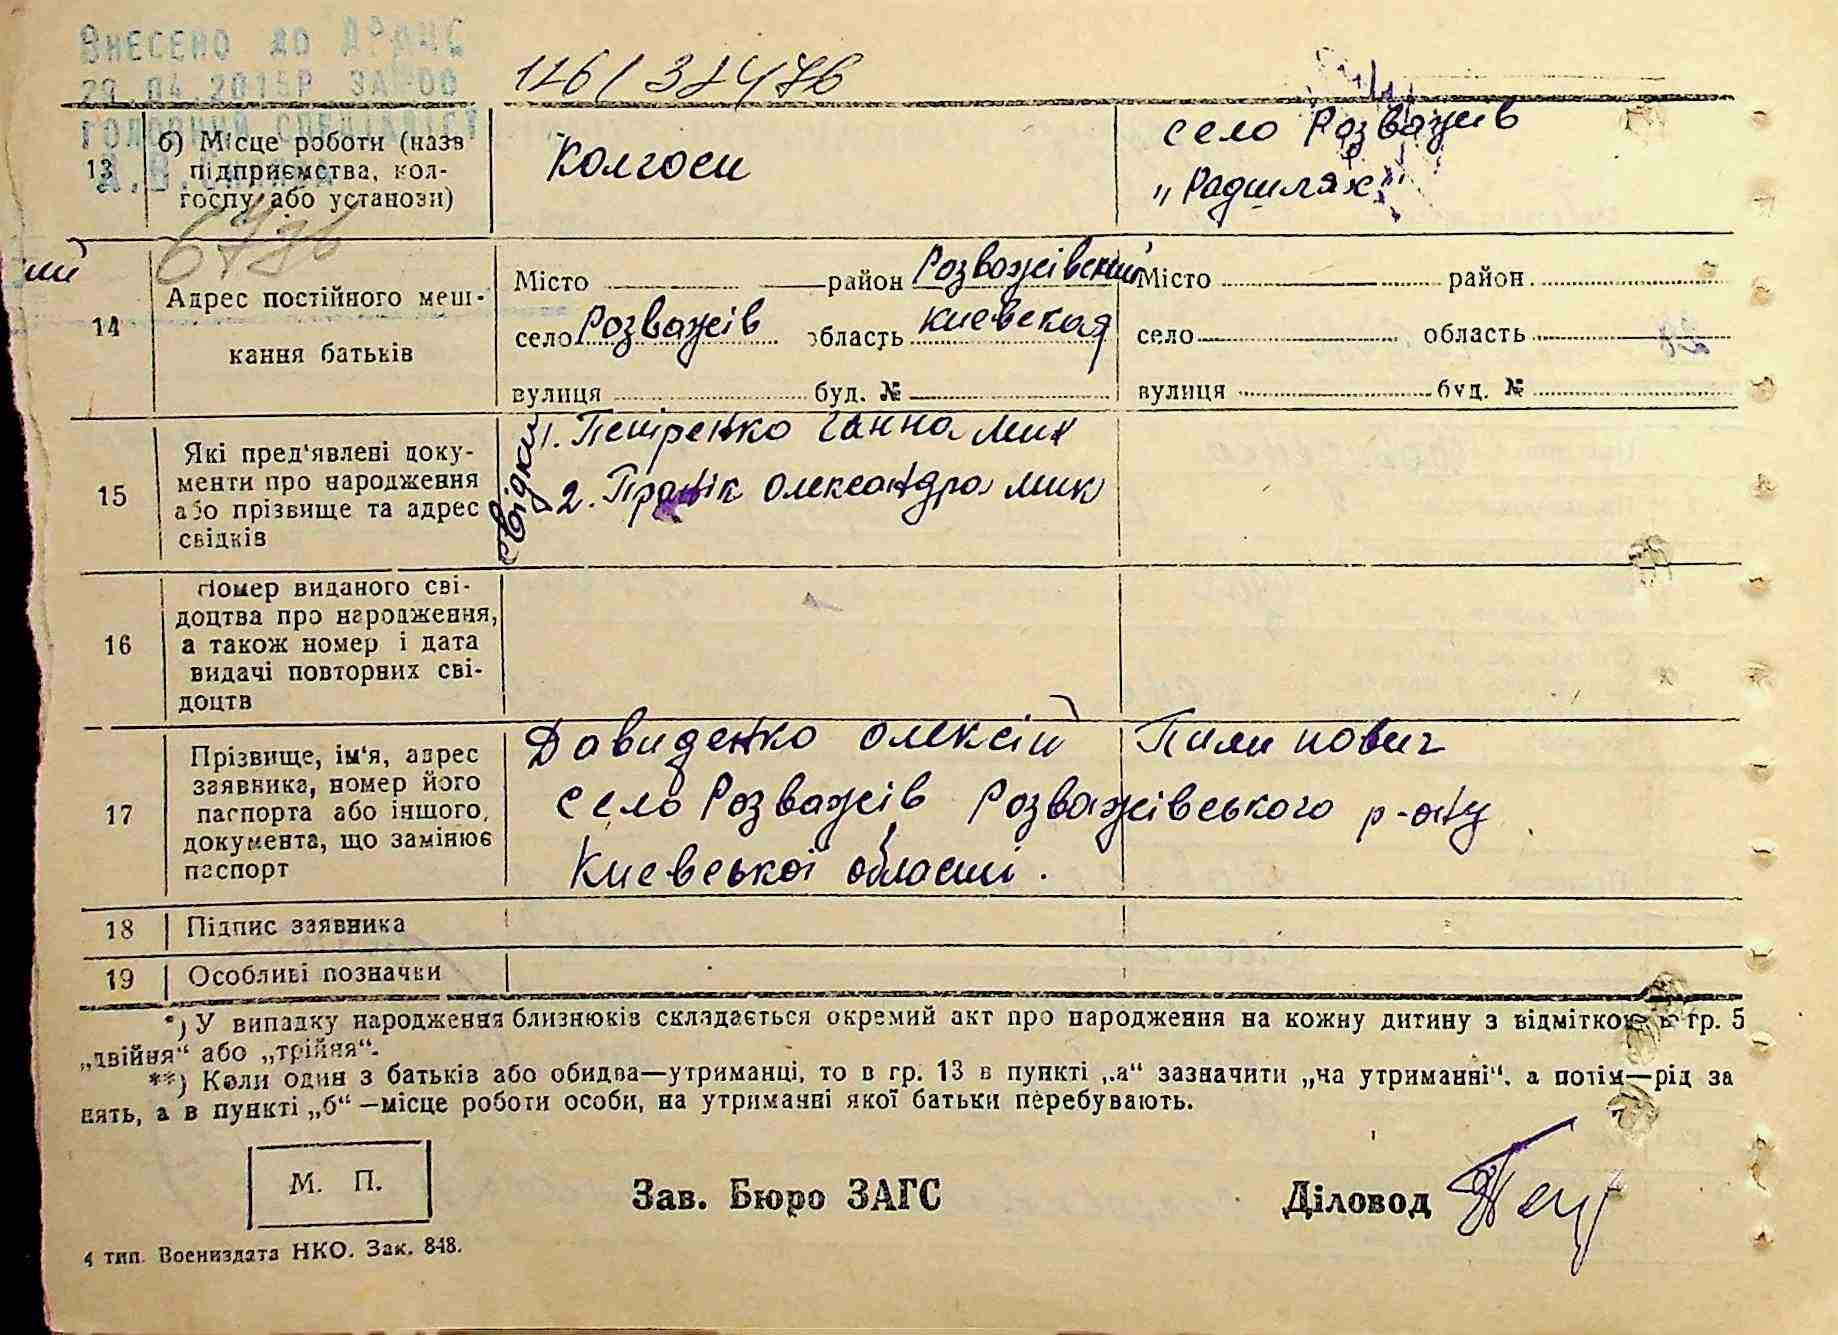 Внесено до ДРАЦС
29.04.2015р за 00
головний спеціаліст
126/32476
13 б) Місце роботи (назв підприємства, колгоспу або установи)
Колгосп
село Розважів
„Радшлях"
6476
ий
14 Адрес постійного мешкання батьків
Місто район Розважівський
село Розважів область киевская
вулиця буд. №
Місто район
село область
вулиця буд. №
15 Які пред'явлені документи про народження або прізвище та адрес свідків
свідки
1. Петренко Ганна Мих
2. Олександра Мик
16 Номер виданого свідоцтва про народження, а також номер і дата видачі повторних свідоцтв
17 Прізвище, ім'я, адрес заявника, номер його паспорта або іншого, документа, що замінює паспорт
Давиденко Олексій Пилипович
село Розважів Розважівського р-ну
Киевської області.
18 Підпис заявника
19 Особливі позначки
*) У випадку народження близнюків складається окремий акт про народження на кожну дитину з відміткою в гр. 5
„двійня" або „трійня".
**) Коли один з батьків або обидва—утриманці, то в гр. 13 в пункті „а" зазначити „на утриманні", а потім—рід за
нять, а в пункті „б"—місце роботи особи, на утриманні якої батьки перебувають.
М. П.
Зав. Бюро ЗАГС
Діловод
4 тип. Воениздата НКО. Зак. 848.